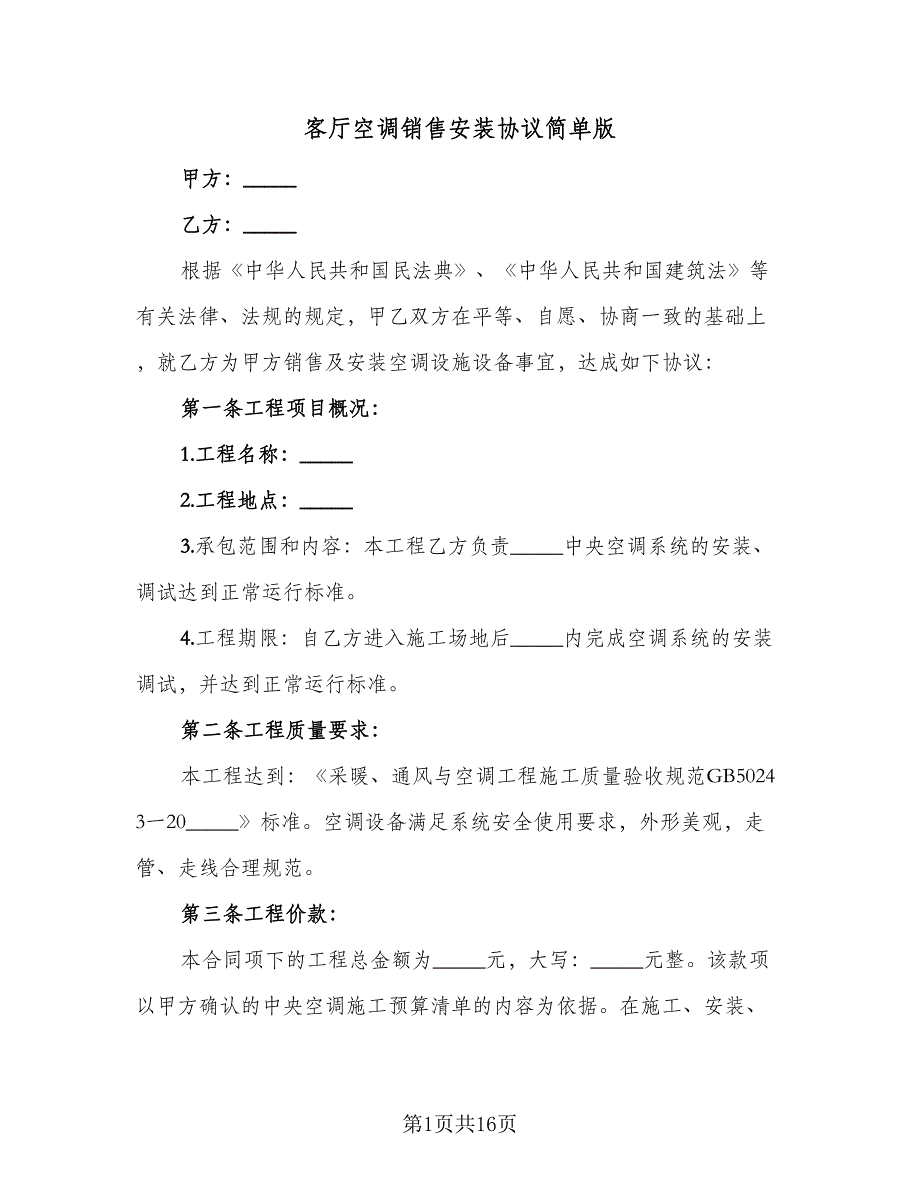 客厅空调销售安装协议简单版
甲方：_____
乙方：_____
根据《中华人民共和国民法典》、《中华人民共和国建筑法》等
有关法律、法规的规定，甲乙双方在平等、自愿、协商一致的基础上
，就乙方为甲方销售及安装空调设施设备事宜，达成如下协议：
第一条工程项目概况：
1.工程名称：_____
2.工程地点：_____
3.承包范围和内容：本工程乙方负责_____中央空调系统的安装、
调试达到正常运行标准。
4.工程期限：自乙方进入施工场地后_____内完成空调系统的安装
调试，并达到正常运行标准。
第二条工程质量要求：
本工程达到：《采暖、通风与空调工程施工质量验收规范GB5024
3一20_____》标准。空调设备满足系统安全使用要求，外形美观，走
管、走线合理规范。
第三条工程价款：
本合同项下的工程总金额为_____元，大写：_____元整。该款项
以甲方确认的中央空调施工预算清单的内容为依据。在施工、安装、
第1页共16页